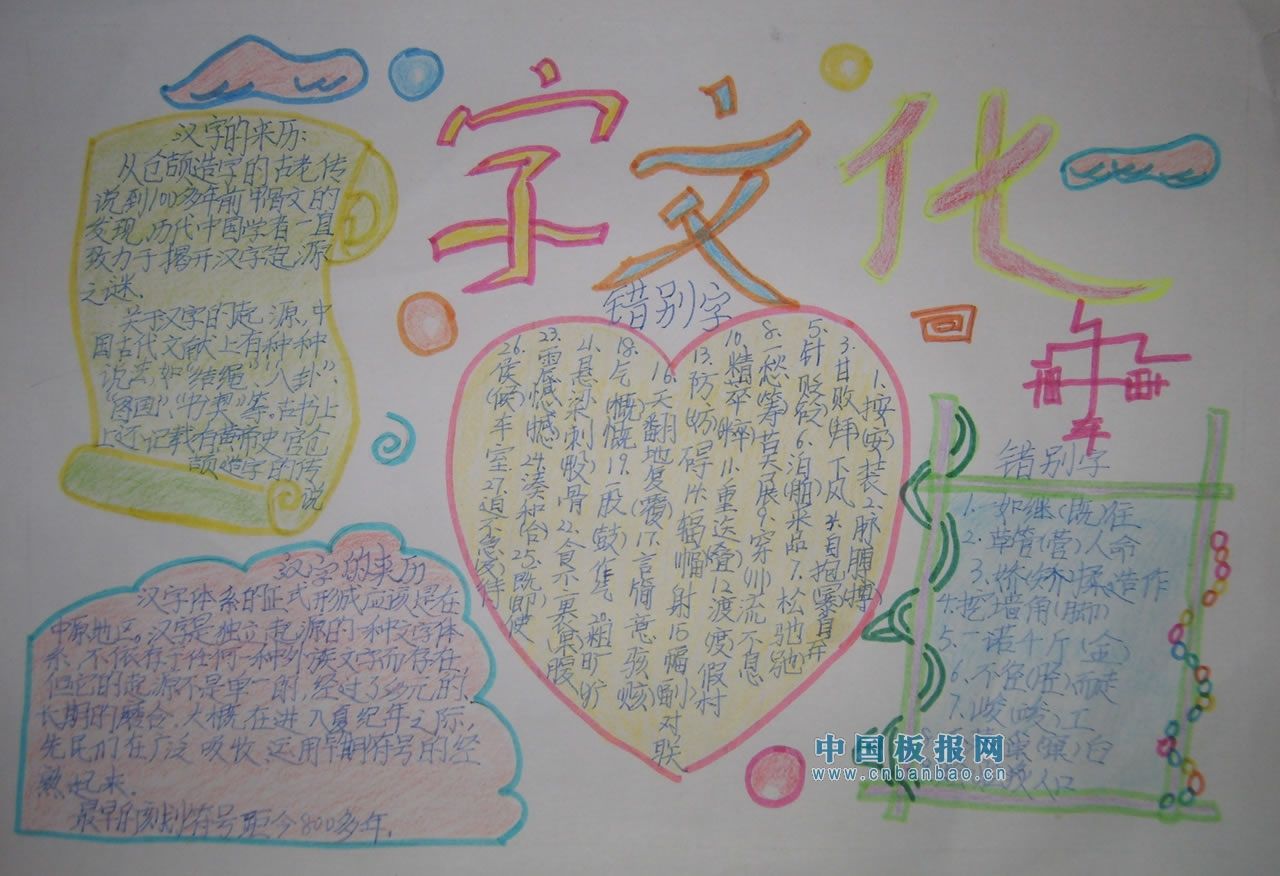 字文化
汉字的来历:
从仓颉造字的古老传
说到100多年前甲骨文的
发现,历代中国学者一直
致力于揭开汉字起源
之谜.
关于汉字的起源,中
国古代文献上有种种
说法,如“结绳”、“八卦”、
“图画”、“书契”等。古书上
上还记载有黄帝史官仓
颉造字的传
说
汉字的来历
汉字体系的正式形成应该是在
中原地区。汉字是独立起源的一种文字体
系,不依存于任何一种外族文字而存在,
但它的起源不是单一的,经过了多元的,
长期的融合.大概在进入夏纪年之际,
先民们在广泛吸收、运用早期符号的经
起来.
最早的刻划符号距今800多年.
错别字
1.按(安)装2.脉膊(搏)
3.甘败(拜)下风4.自抱暴自弃
5.针贬(砭)6.泊(舶)来品7.松驰(弛)
8.一愁(筹)莫展9.穿(川)流不息
10.精萃(粹)11.重迭(叠)12.渡(度)假村
13.防(妨)碍14.辐(幅)射15.幅(副)对联
16.天翻地复(覆)17.言简意骇(赅)
18.气慨(概)19.一股(鼓)作气 粗旷(犷)
21.悬梁刺股骨22.食不裹(果)腹
23.震憾(撼)24.凑和(合)25.既(即)使
26.侯(候)车室27.迫不急(及)待
错别字
1.一如继(既)往
2.草管(菅)人命
3.娇(矫)揉造作
4.挖墙角(脚)
5.一诺千斤(金)
6.不径(胫)而走
7.峻(竣)工
白
人口
中国板报网
www.cnbanbao.cn